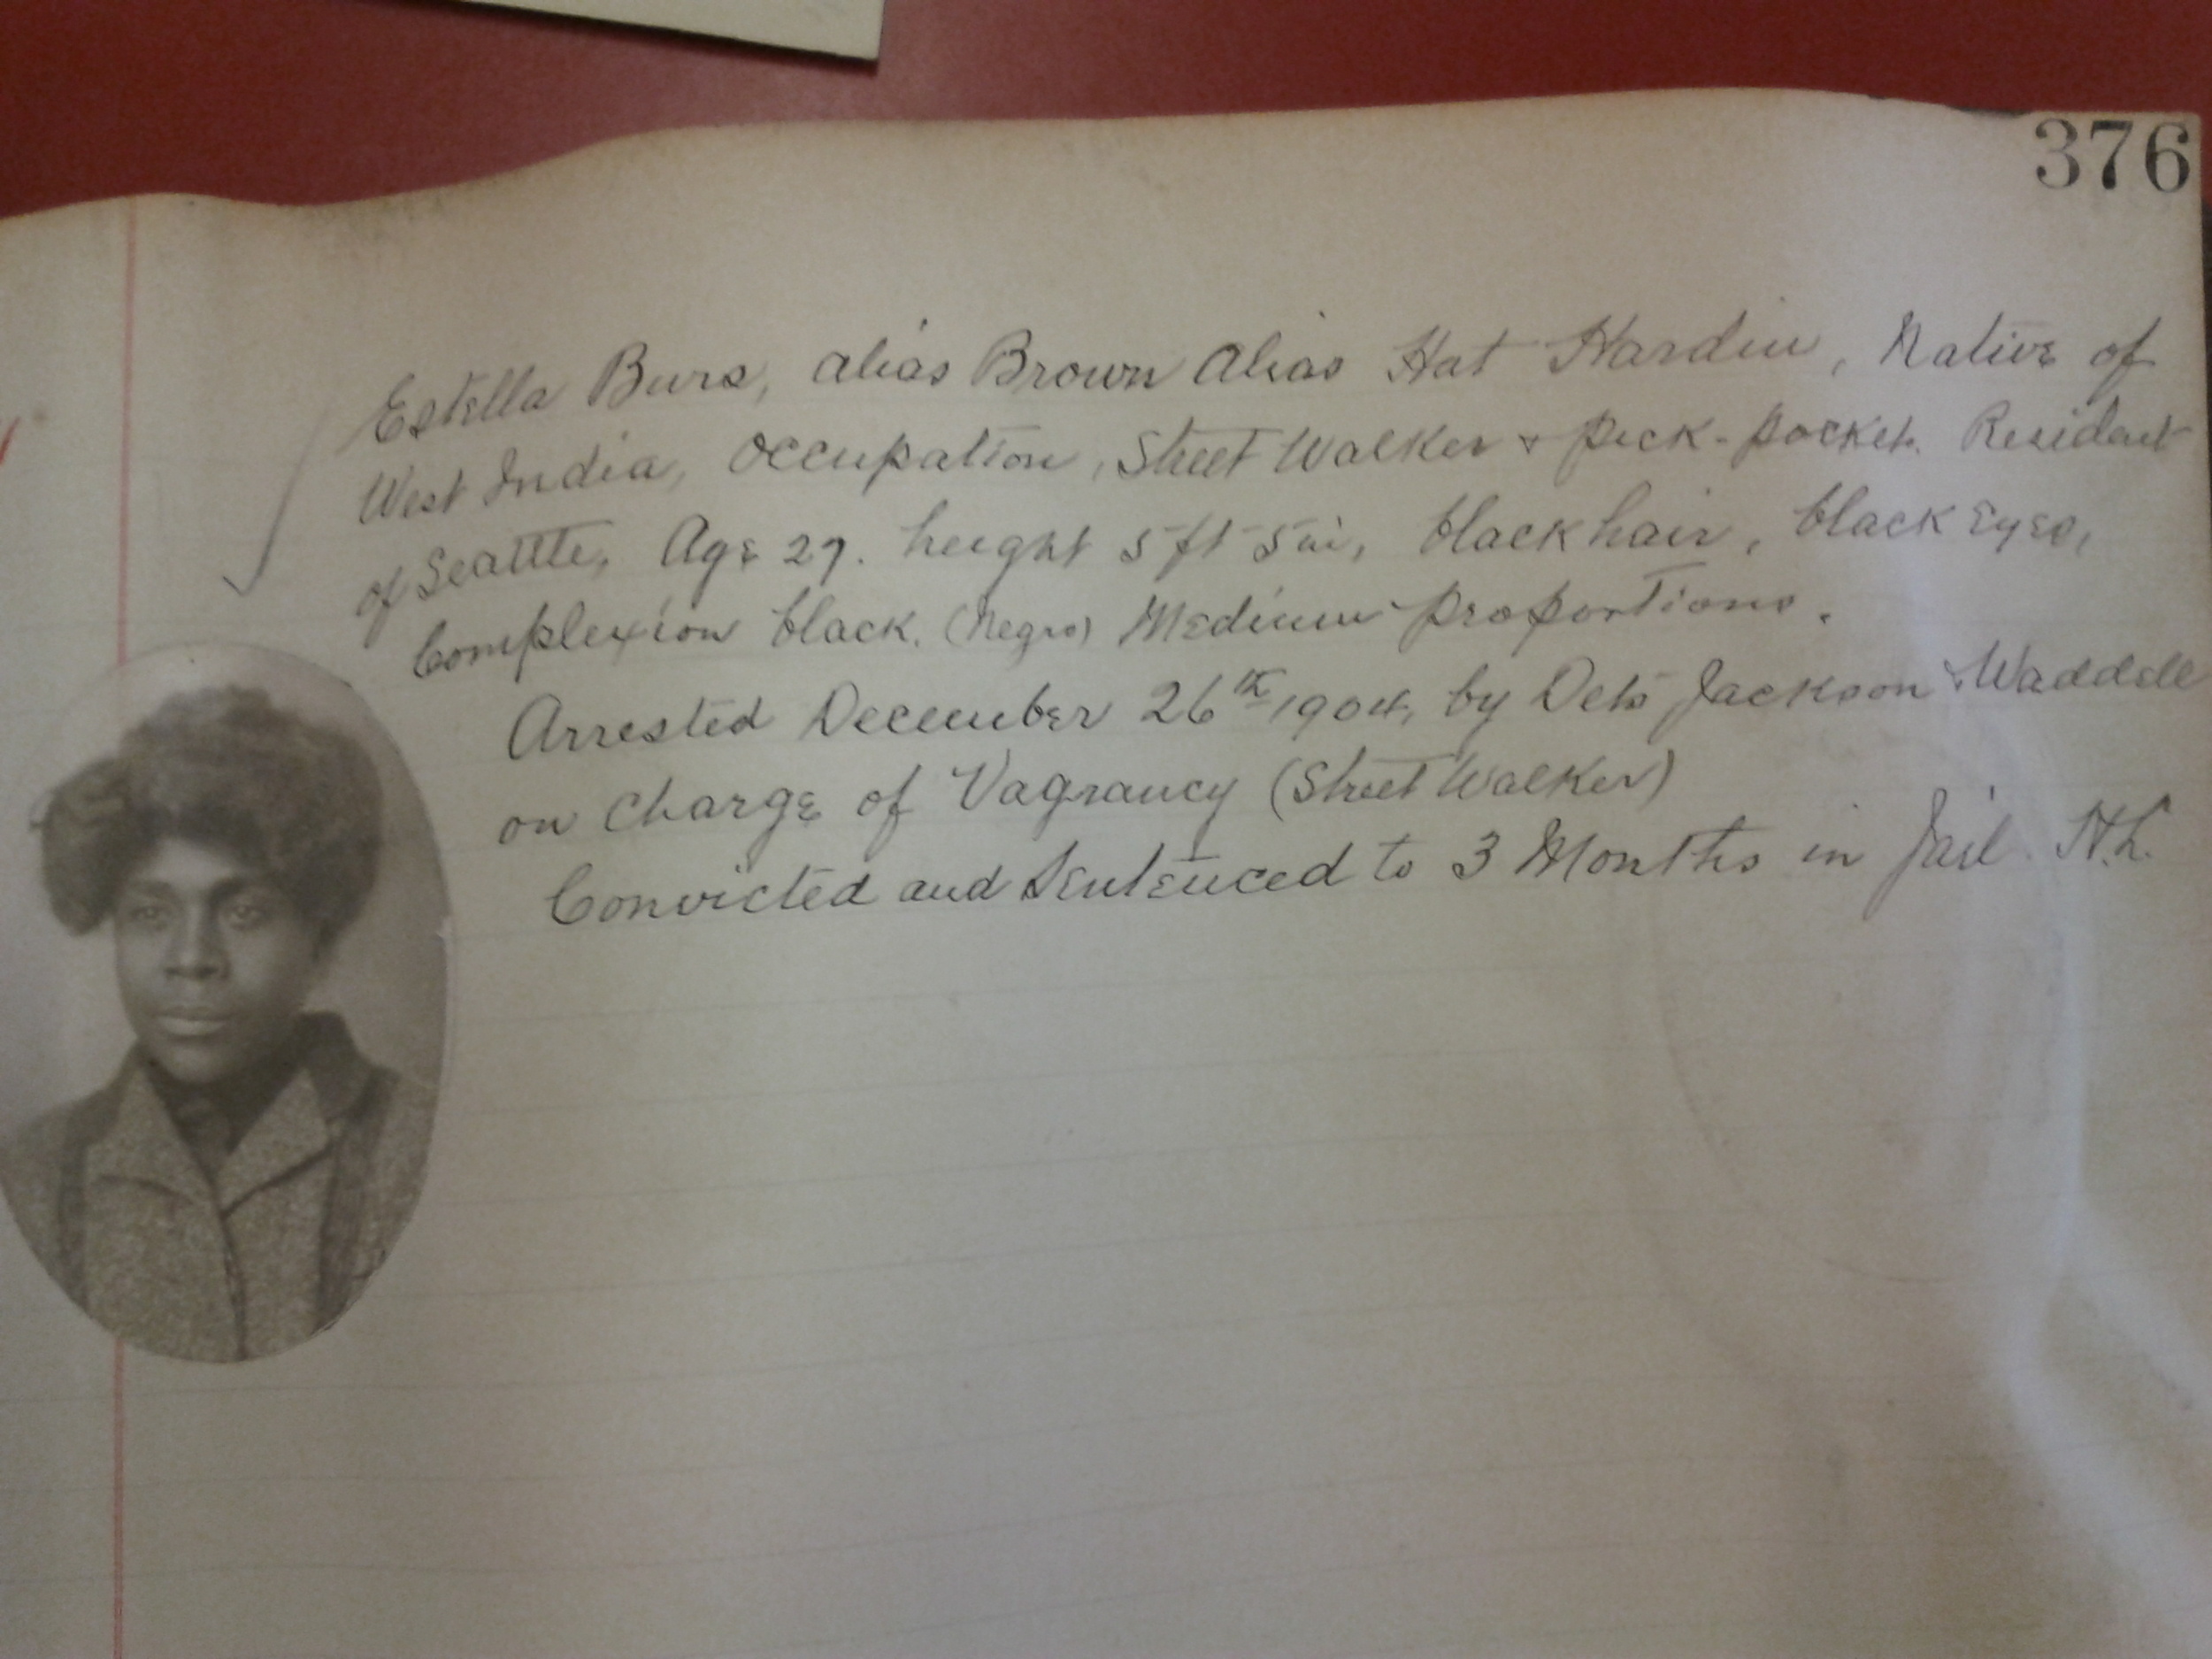 376
Estella Burs, alias Brown Alias Hat Hardin, Native of
West India, Occupation, Street Walker & Pick-pocket. Resident
of Seattle, Age 27. height 5 ft 5 in, black hair, black Eyes,
Complexion black. (Negro) Medium Proportions.
Arrested December 26th 1904, by Dets Jackson & Waddell
on Charge of Vagrancy (Street Walker)
Convicted and Sentenced to 3 Months in Jail. H.L.